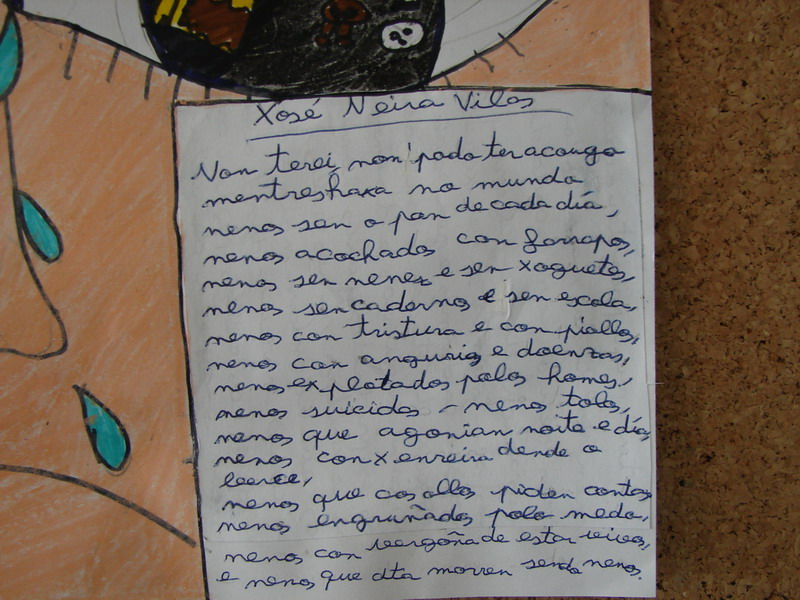 Xosé Neira Vilas
Non terei, non podo ter acougo
mentres haxa no mundo
nenos sen o pan de cada día,
nenos acochados con farrapos,
nenos sen nenez e sen xoguetes,
nenos sen caderno e sen escola,
nenos con tristura e con piollos,
nenos con angurias e doenzas,
nenos explotados polos homes,
nenos suicidas - nenos tolos,
nenos que agonian noite e día,
nenos con xenreira dende o
berce,
nenos que cos ollos piden contas
nenos engruñados polo medo,
nenos con vergoña de estar vivos,
e nenos que ata morren sendo nenos.